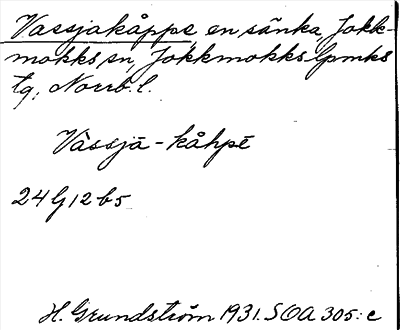 Vassjakåppe, en sänka, Jokk-
mokks sn, Jokkmokks lpmks
tg, Norrb. l.
Vàssjā-kåhpē
24 G 12 b 5
H. Grundström 1931. SOA 305:c